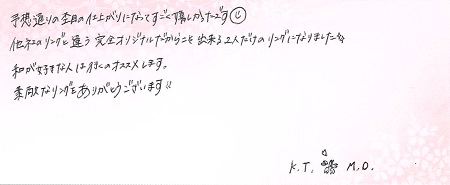 予想通りの杢目の仕上がりになってすごく嬉しかったです
他社のリングと違う完全オリジナルだからこそ出来る2人だけのリングになりました
和が好きな人は行くのオススメします。
素敵なリングをありがとうございます!!
K.T. M.D.